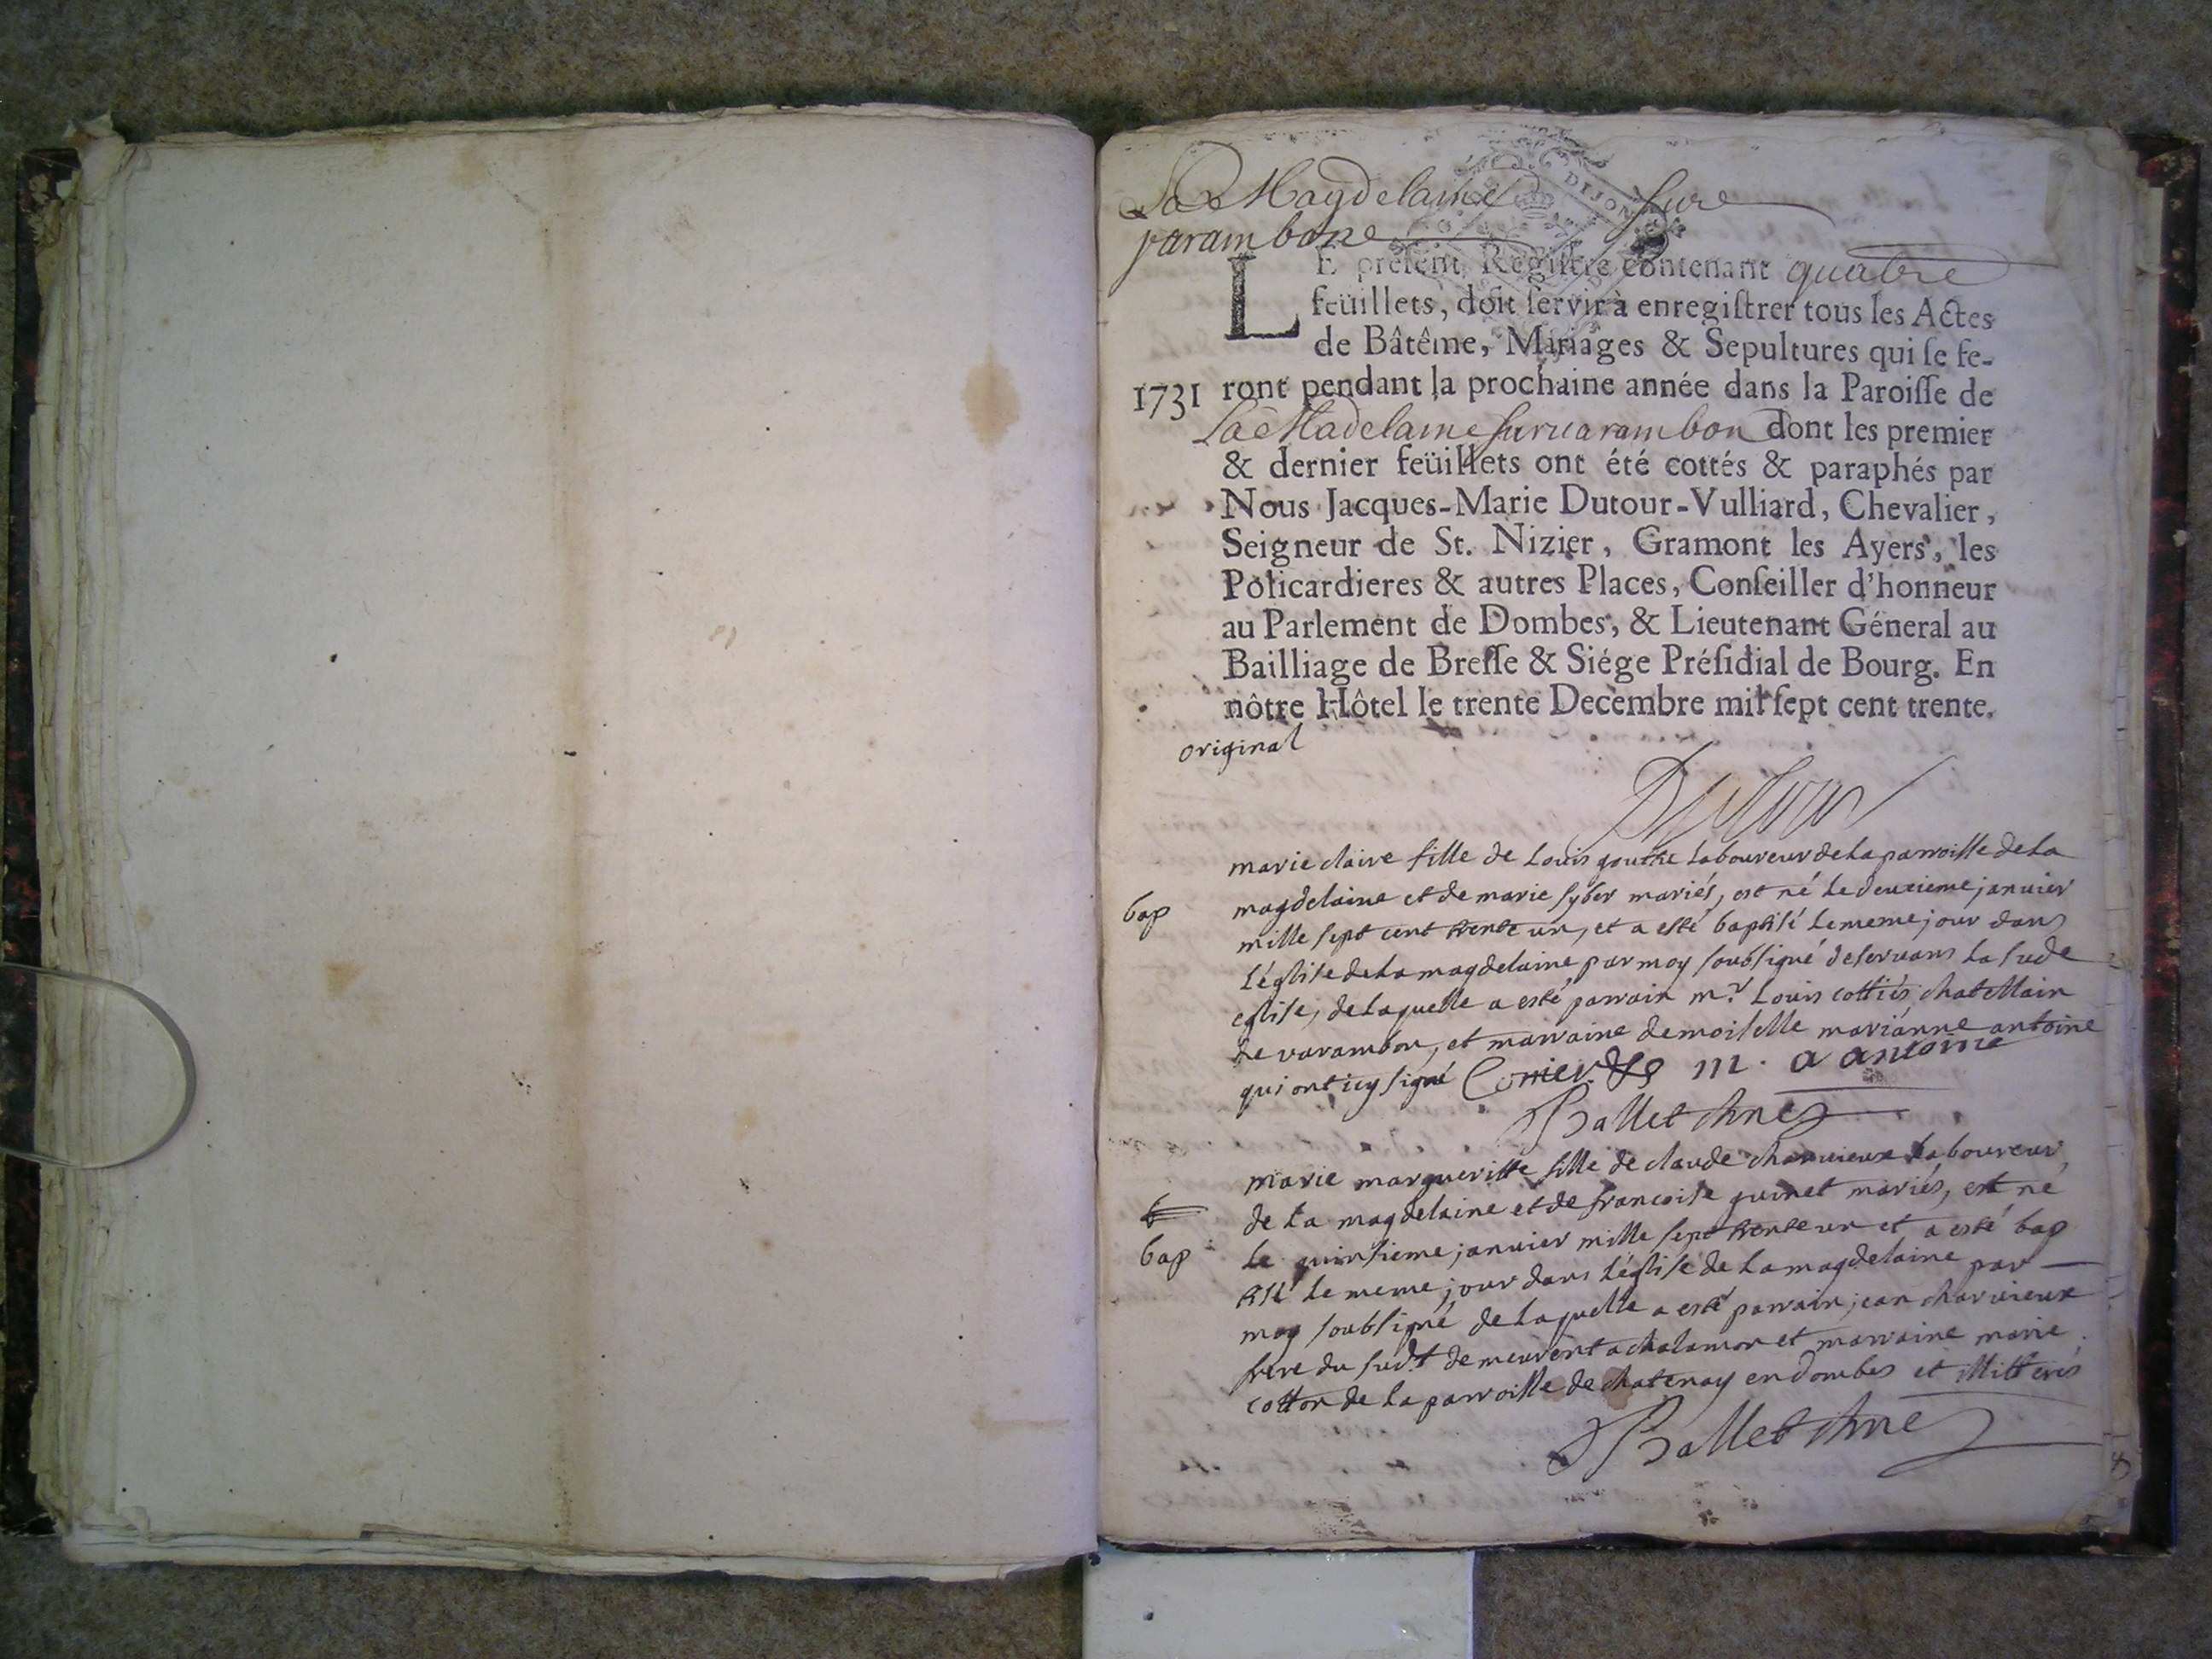 La Magdelaine sure
varambone
DIJON
LE présent Registre contenant quatre
feüillets, doit servir à enregistrer tous les Actes
de Bâtême, Mariages & Sepultures qui se fe-
1731 ront pendant la prochaine année dans la Paroisse de
La Madelaine sur varambon dont les premier
& dernier feüillets ont été cottés & paraphés par
Nous Jacques-Marie Dutour-Vulliard, Chevalier,
Seigneur de St. Nizier, Gramont les Ayers, les
Policardieres & autres Places, Conseiller d'honneur
au Parlement de Dombes, & Lieutenant Géneral au
Bailliage de Bresse & Siége Présidial de Bourg. En
nôtre Hôtel le trente Decembre mil sept cent trente.
original
marie claire fille de Louis goutte Laboureur de La parroisse de La
bap magdelaine et de marie syber mariés, est né Le deuxieme janvier
mille sept cent trente un, et a esté baptisé Le meme jour dans
L'église de La magdelaine par moy soubsigné deservans La sude
eglise, de Laquelle a esté parrain mr. Louis cottiés chatellain
de varambon, et marraine demoiselle marianne antoine
qui ont icy signé m. a antoine
Ballet
marie margueritte fille de claude charvieux Laboureur
de La magdelaine et de francoise guinet mariés, est né
bap Le quinsieme janvier mille sept trente un et a esté bap
tisé Le meme jour dans L'église de La magdelaine par
moy soubsigné de Laquelle a esté parrain jean charvieux
frere du sudt demeurent a chalamon et marraine marie
cotton de La parroisse de chatenay en dombes et illitterés
Ballet